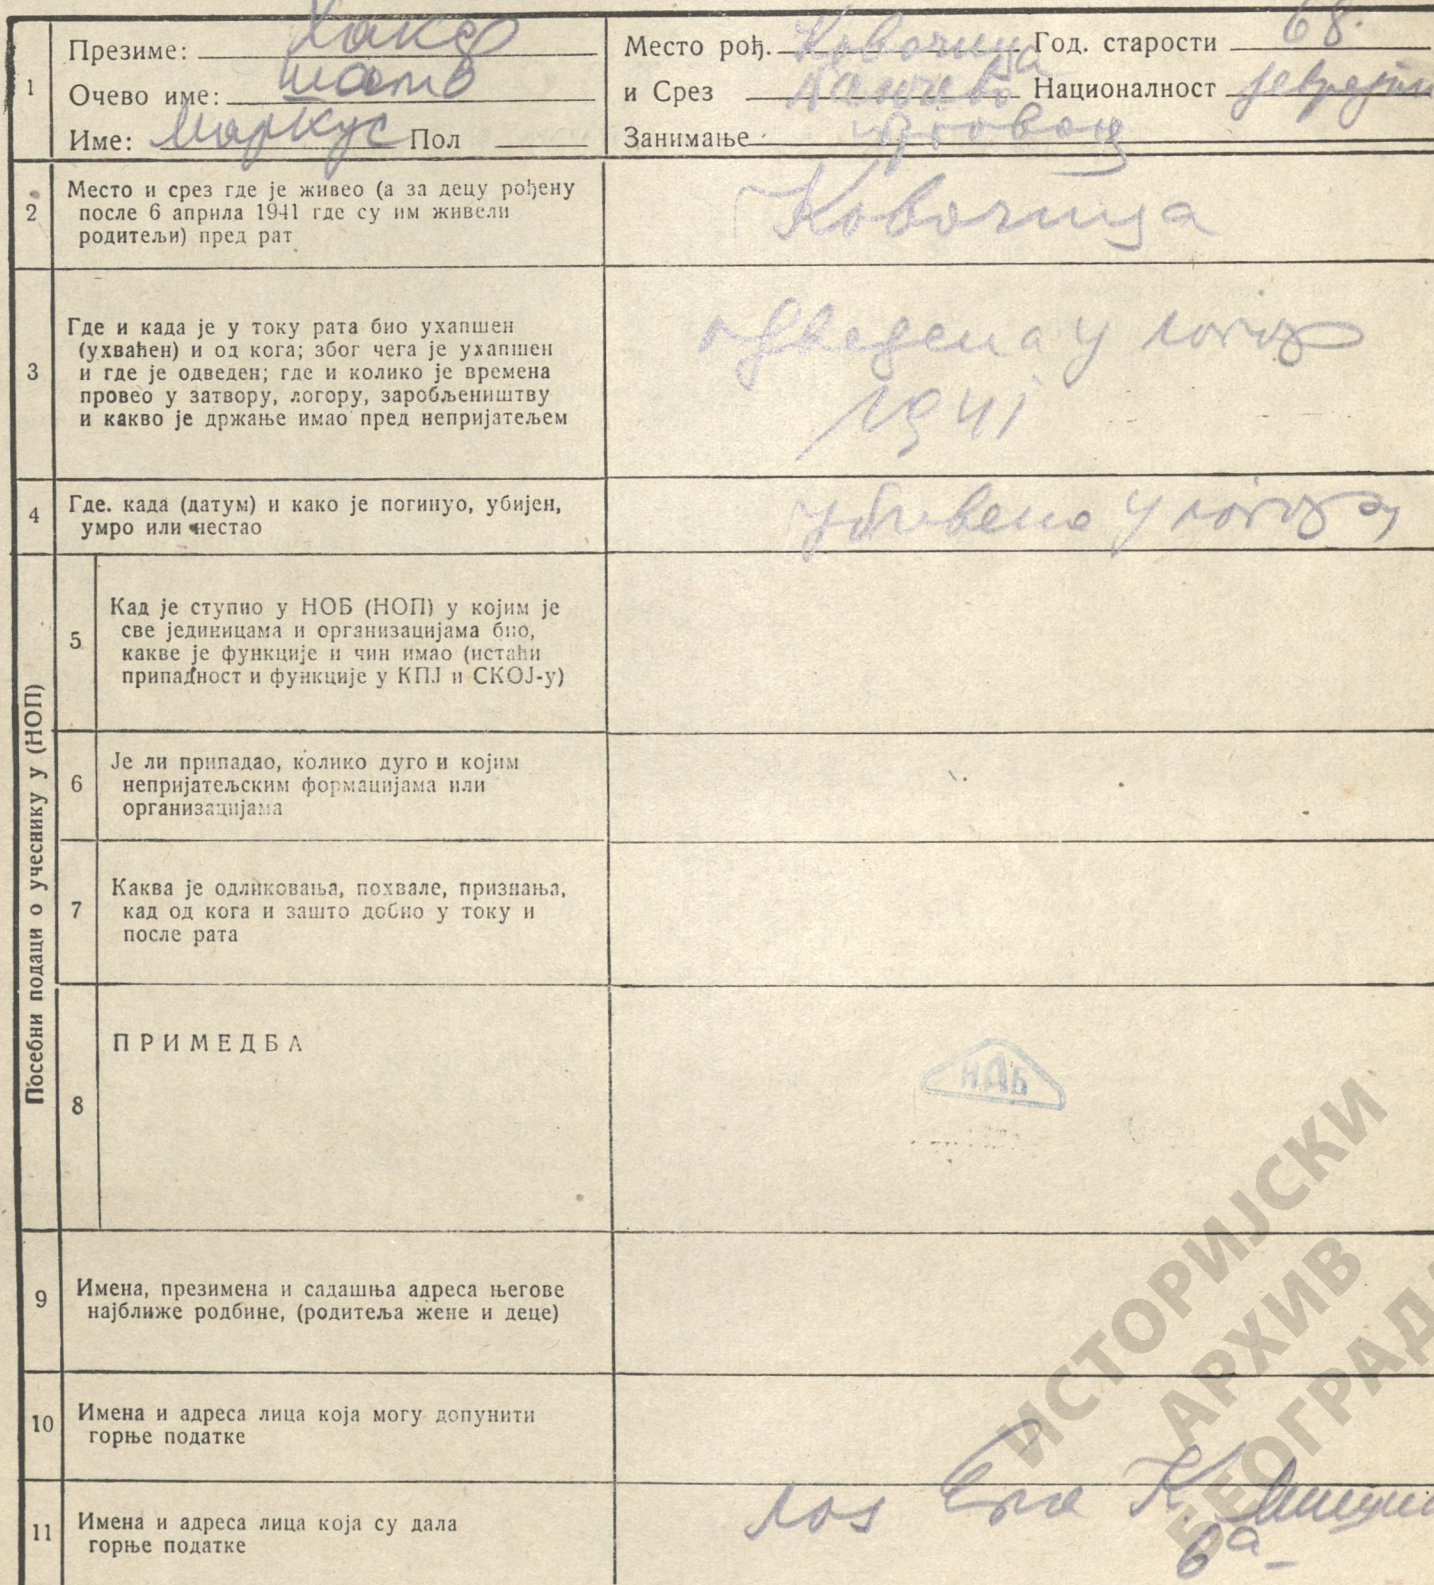 1
Презиме: Хакер
Очево име:
Име: Маркус Пол
Место рођ. Ковачица Год. старости 68.
и Срез Панчево Националност јеврејин
Занимање трговац
2
Место и срез где је живео (а за децу рођену
после 6 априла 1941 где су им живели
родитељи) пред рат
Ковачица
3
Где и када је у току рата био ухапшен
(ухваћен) и од кога; због чега је ухапшен
и где је одведен; где и колико је времена
провео у затвору, логору, заробљеништву
и какво је држање имао пред непријатељем
одведена у логор
1941
4
Где. када (датум) и како је погинуо, убијен,
умро или нестао
убивена у логору
Посебни подаци о учеснику у (НОП)
5
Кад је ступио у НОБ (НОП) у којим је
све јединицама и организацијама био,
какве је функције и чин имао (истаћи
припадност и функције у КПЈ и СКОЈ-у)
6
Је ли припадао, колико дуго и којим
непријатељским формацијама или
организацијама
7
Каква је одликовања, похвале, признања,
кад од кога и зашто добио у току и
после рата
8
ПРИМЕДБА
НАБ
9
Имена, презимена и садашња адреса његове
најближе родбине, (родитеља жене и деце)
10
Имена и адреса лица која могу допунити
горње податке
11
Имена и адреса лица која су дала
горње податке
К.
6а
ИСТОРИЈСКИ
АРХИВ
БЕОГРАДА